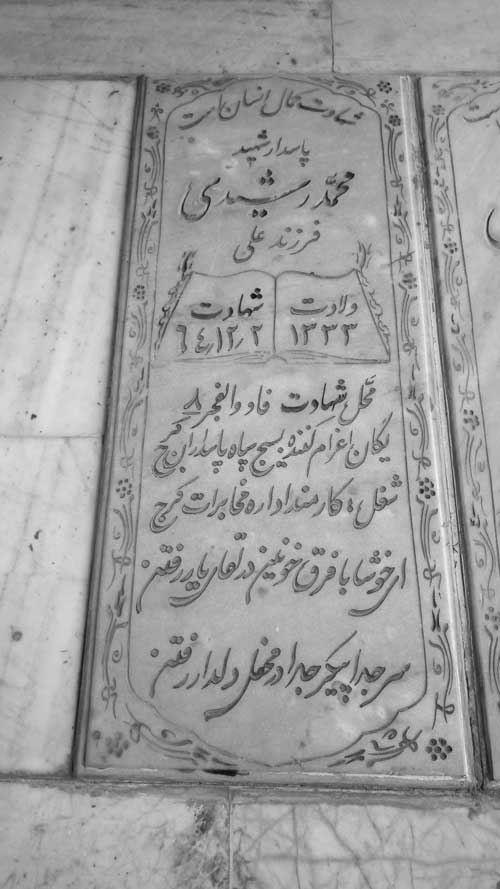 شهادت کمال انسان است
پاسدار شهید
محمّد رشیدی
فرزند علی
ولادت
۱۳۳۳
شهادت
۶۴٫۱۲٫۲
محّل شهادت فاو والفجر ۸
یگان اعزام کننده بسیج سپاه پاسداران کرج
شغل: کارمند اداره مخابرات کرج
ای خوشا با فرق خونین در لقای یار رفتن
سر جدا پیکر جدا در محفل دلدار رفتن